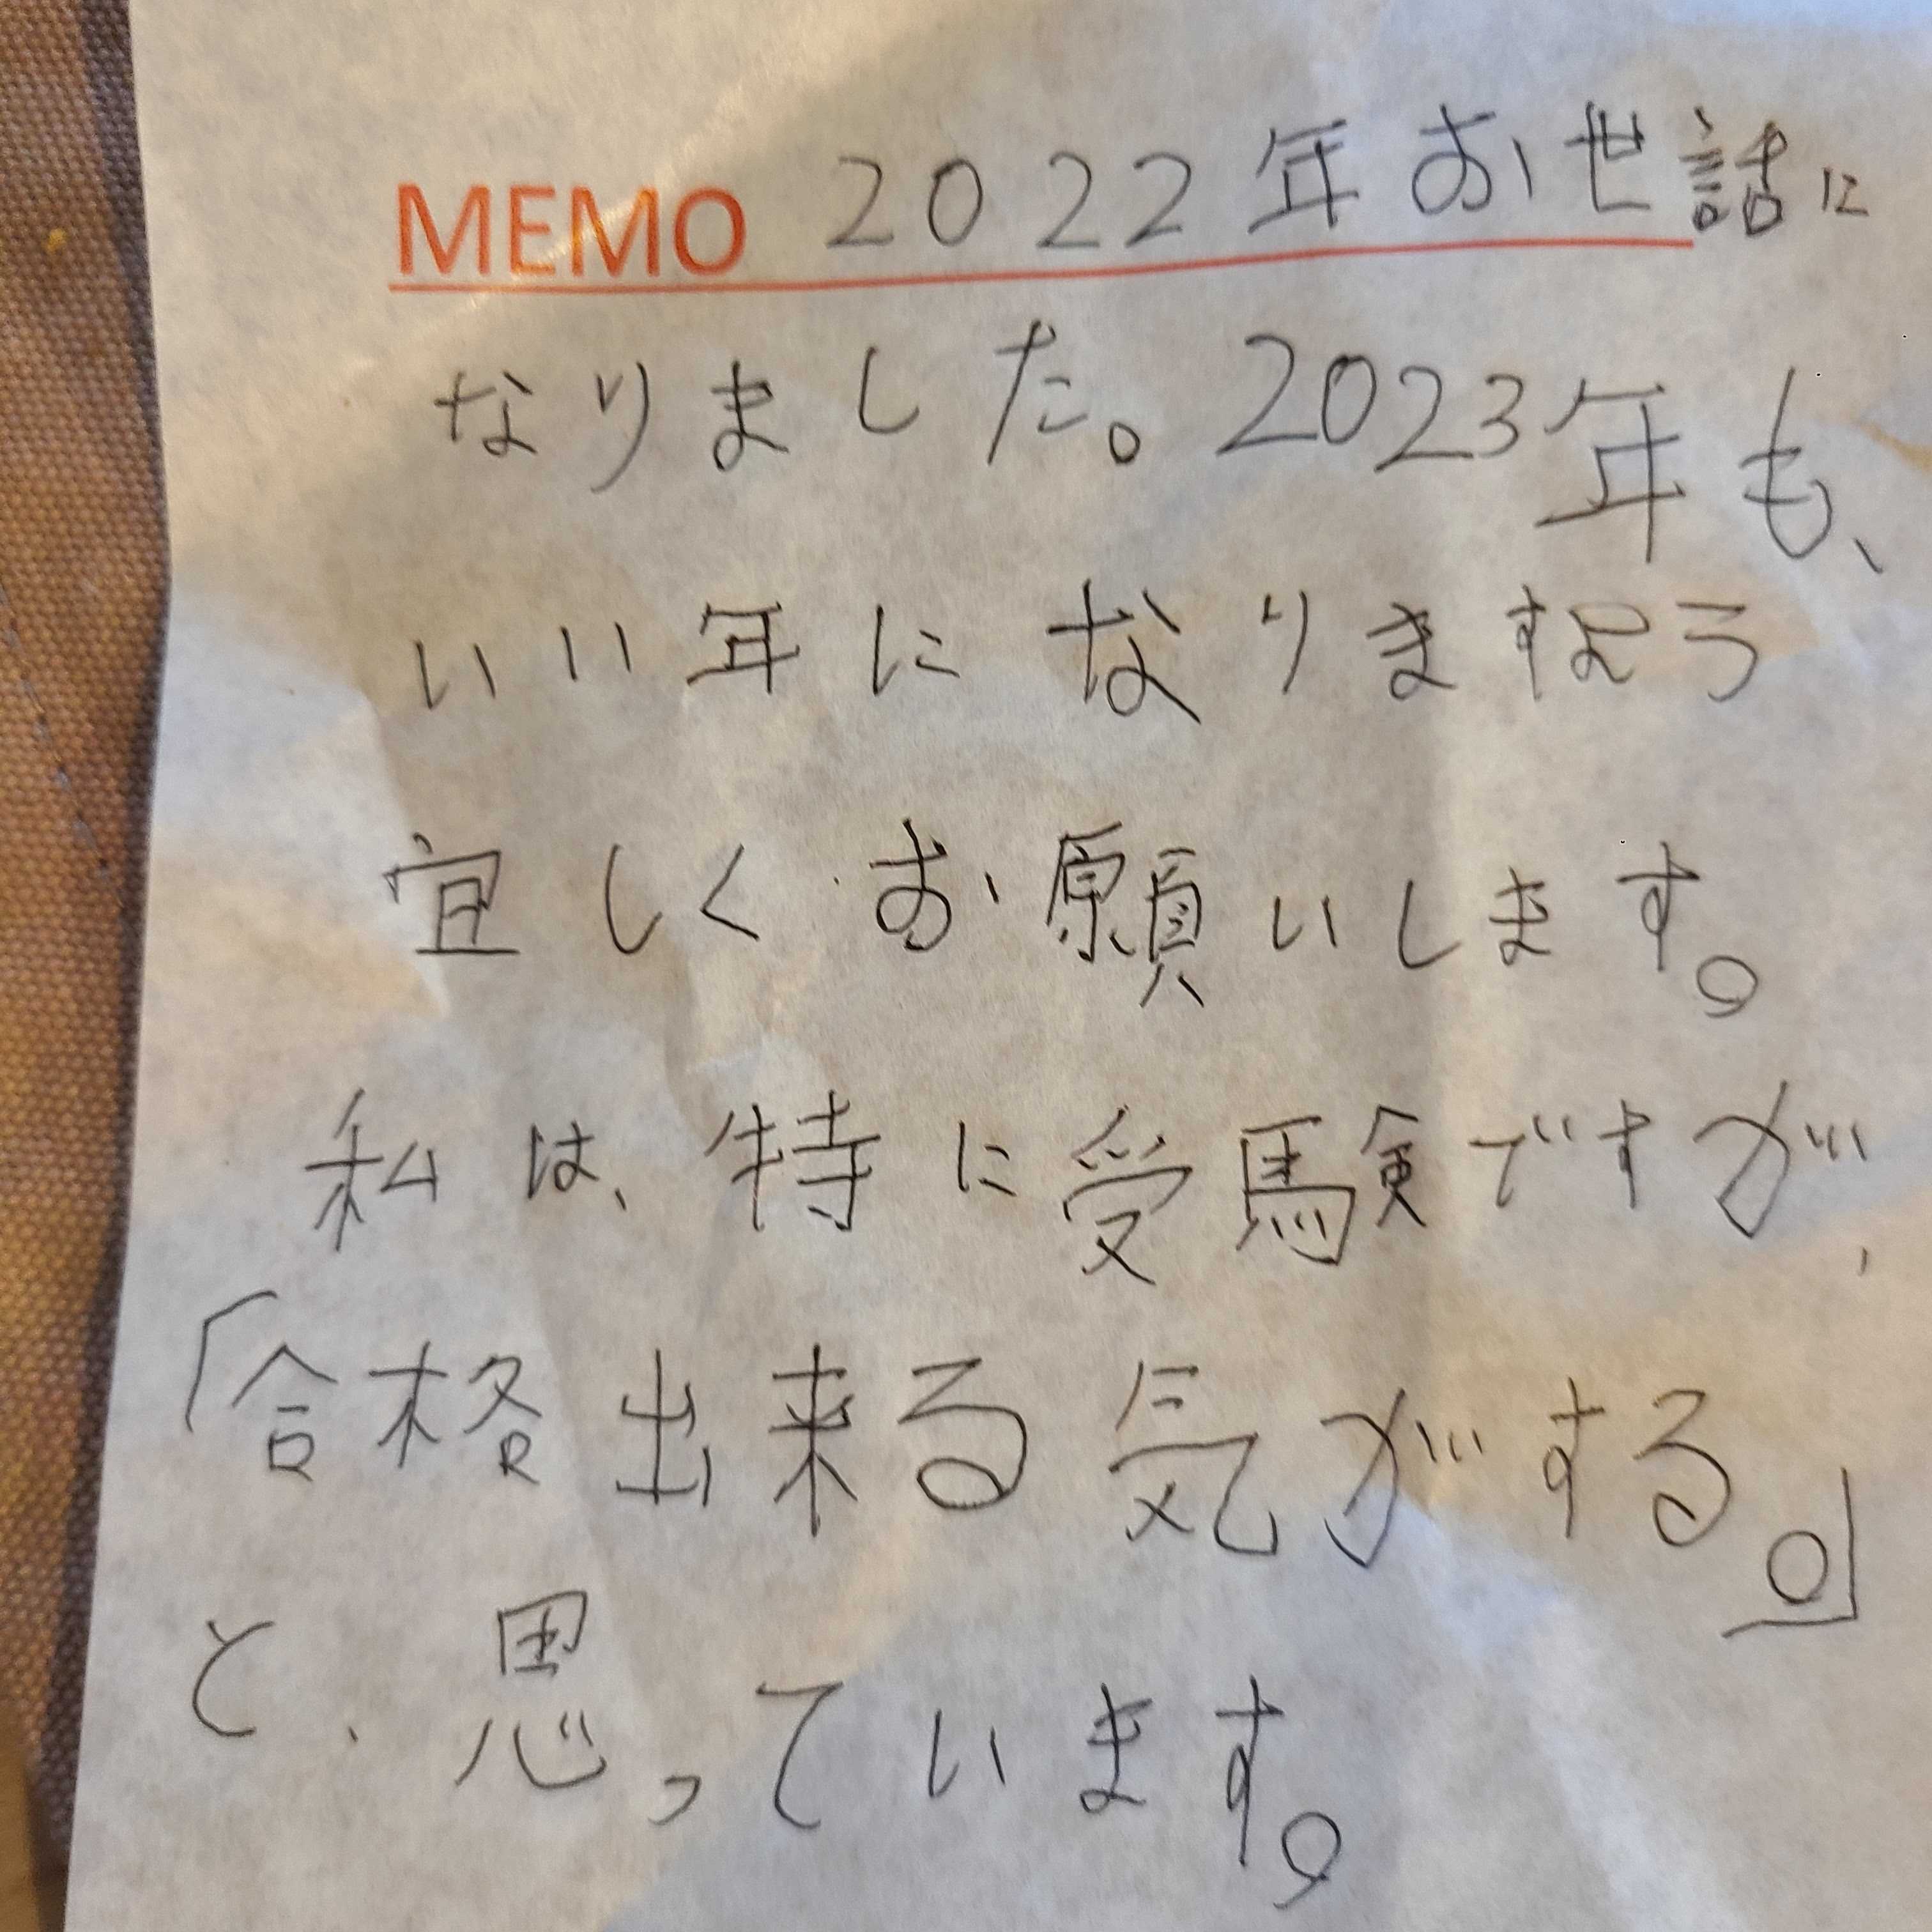 MEMO 2022年お世話に
なりました。2023年も、
いい年になりますよう
宜しくお願いします。
私は、特に受験ですが、
「合格出来る気がする。」
と、思っています。